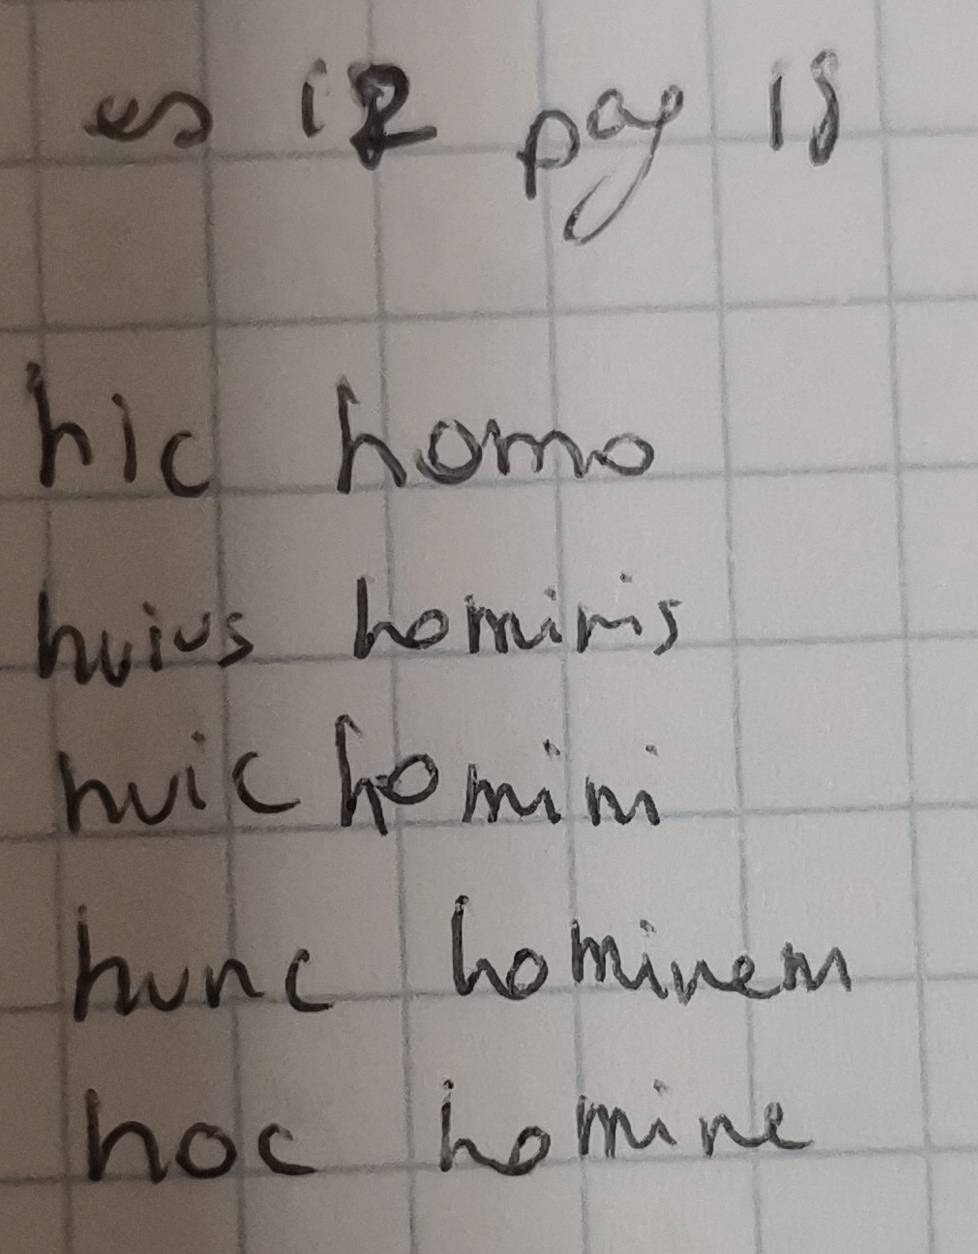 es 12 pag 18
hic homo
huius hominis
huic homini
hunc hominem
hoc homine